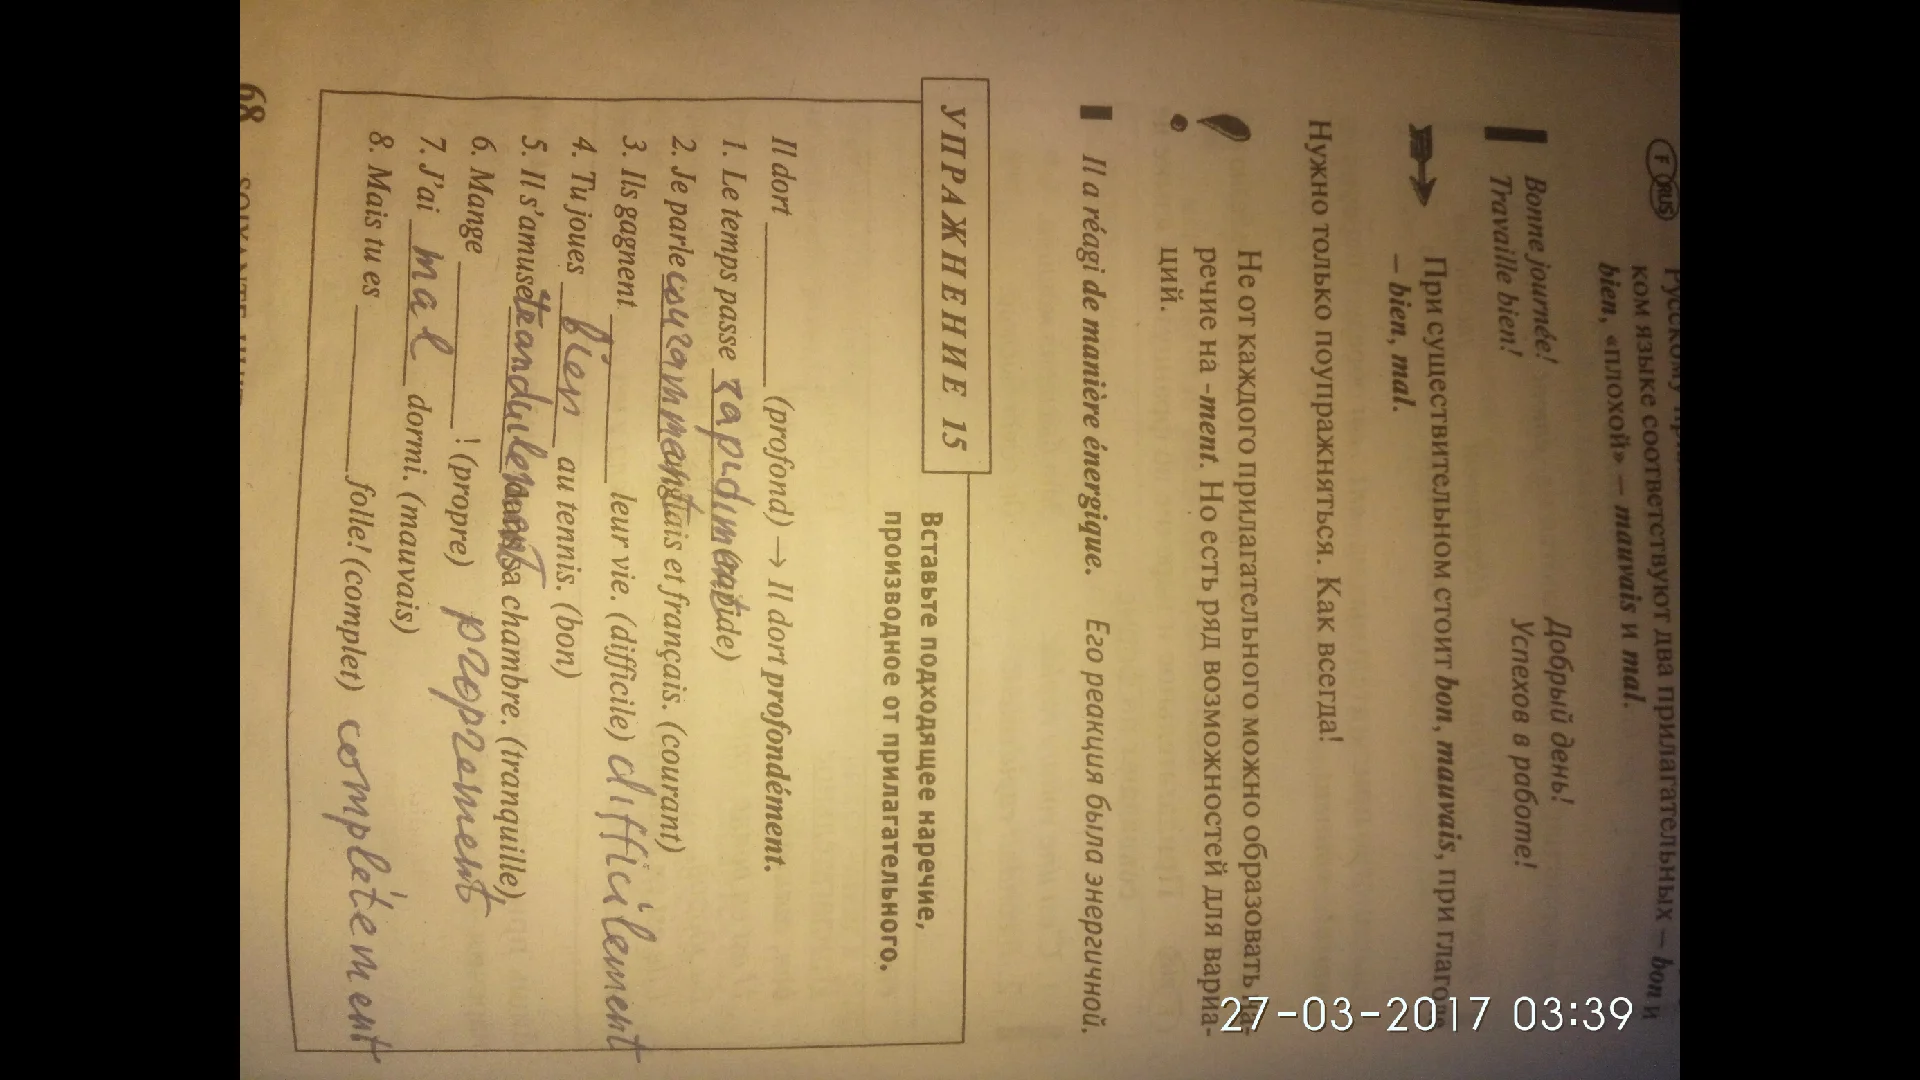 F RUS
ком языке соответствуют два прилагательных – bon и
bien, «плохой» – mauvais и mal.
Bonne journée! Добрый день!
Travaille bien! Успехов в работе!
При существительном стоит bon, mauvais, при
– bien, mal.
Нужно только поупражняться. Как всегда!
Не от каждого прилагательного можно образовать на-
речие на -ment. Но есть ряд возможностей для вариа-
ций.
Il a réagi de manière énergique. Его реакция была энергичной.
УПРАЖНЕНИЕ 15
Вставьте подходящее наречие,
производное от прилагательного.
Il dort ____________ (profond) → Il dort profondément.
1. Le temps passe rapidimant
2. Je parle courammant et français. (courant)
3. Ils gagnent ____________ leur vie. (difficile) difficilement
4. Tu joues bien au tennis. (bon)
5. Il s'amuse sa chambre. (tranquille)
6. Mange ____________ ! (propre) proprement
7. J'ai mal dormi. (mauvais)
8. Mais tu es ____________ folle! (complet) complétement
68
27-03-2017 03:39